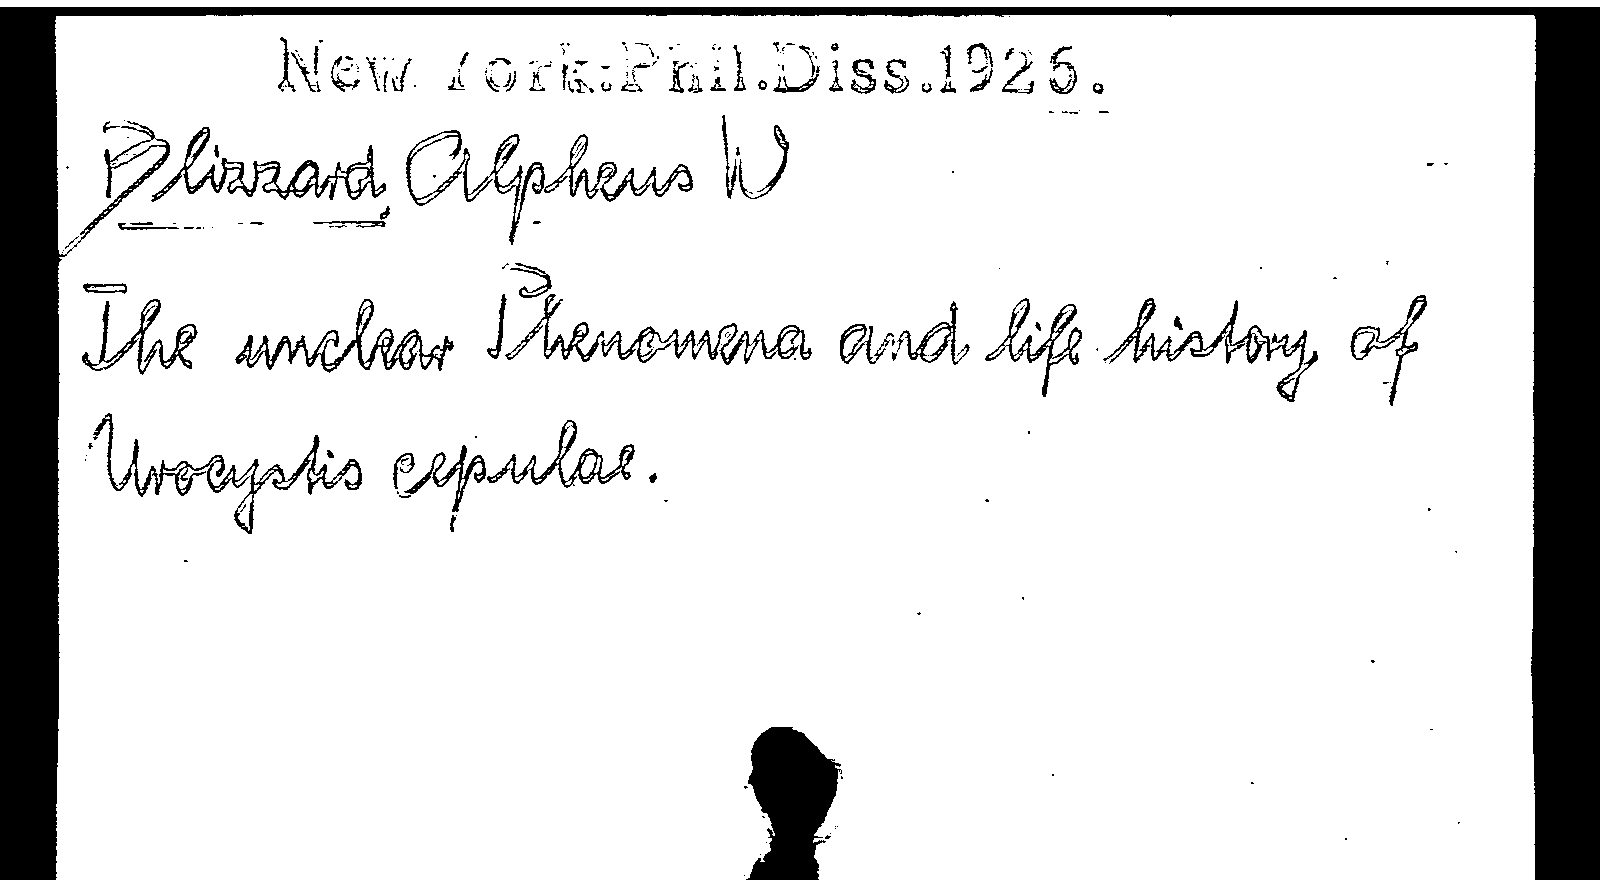 New York.Phil.Diss.1926.
Blizzard, Alpheus W
The unclear Phenomena and life history of
Urocystis cepulae.